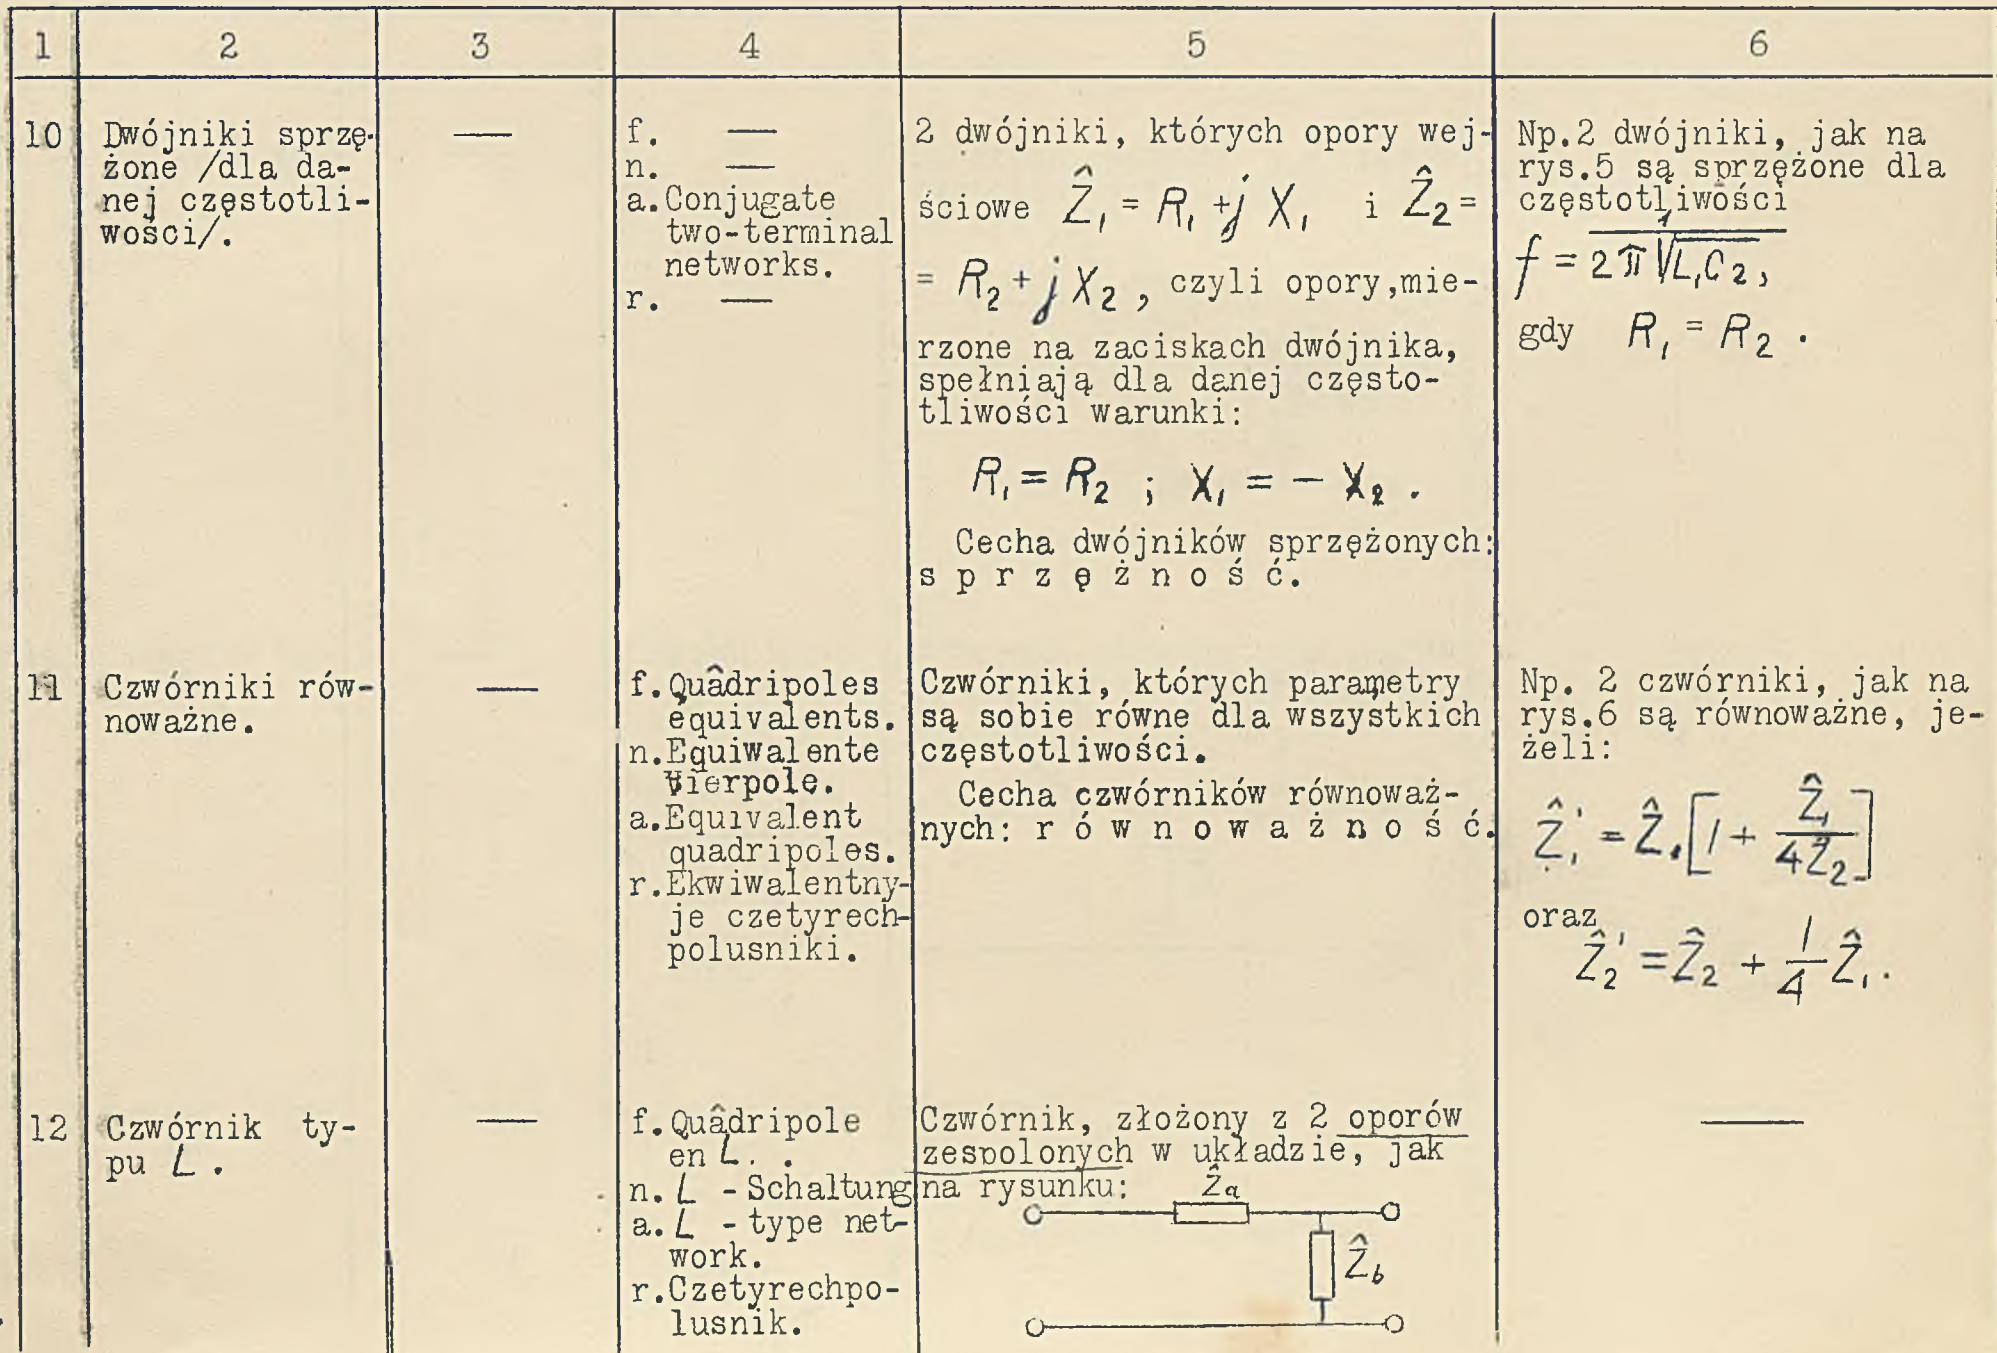 1 2 3 4 5 6
10 Dwójniki sprzę-
żone /dla da-
nej częstotli-
wości/.
—
f. —
n. —
a. Conjugate
two-terminal
networks.
r. —
2 dwójniki, których opory wej-
ściowe Ẑ₁ = R₁ + j X₁ i Ẑ₂ =
= R₂ + j X₂, czyli opory, mie-
rzone na zaciskach dwójnika,
spełniają dla danej często-
tliwości warunki:
R₁ = R₂ ; X₁ = - X₂ .
Cecha dwójników sprzężonych:
s p r z ę ż n o ś ć.
Np. 2 dwójniki, jak na
rys.5 są sprzężone dla
częstotliwości
f = 1 / 2π √L₁C₂,
gdy R₁ = R₂ .
11 Czwórniki rów-
noważne.
—
f. Quâdripoles
équivalents.
n. Equiwalente
Vierpole.
a. Equivalent
quadripoles.
r. Ekwiwalentny-
je czetyrech-
polusniki.
Czwórniki, których parametry
są sobie równe dla wszystkich
częstotliwości.
Cecha czwórników równoważ-
nych: r ó w n o w a ż n o ś ć.
Np. 2 czwórniki, jak na
rys.6 są równoważne, je-
żeli:
Ẑ₁' = Ẑ₁[1 + Ẑ₁/4Ẑ₂]
oraz
Ẑ₂' = Ẑ₂ + 1/4 Ẑ₁.
12 Czwórnik ty-
pu L .
—
f. Quâdripole
en L. .
n. L - Schaltung
a. L - type net-
work.
r. Czetyrechpo-
lusnik.
Czwórnik, złożony z 2 oporów
zespolonych w układzie, jak
na rysunku:
Ẑa
Ẑb
—